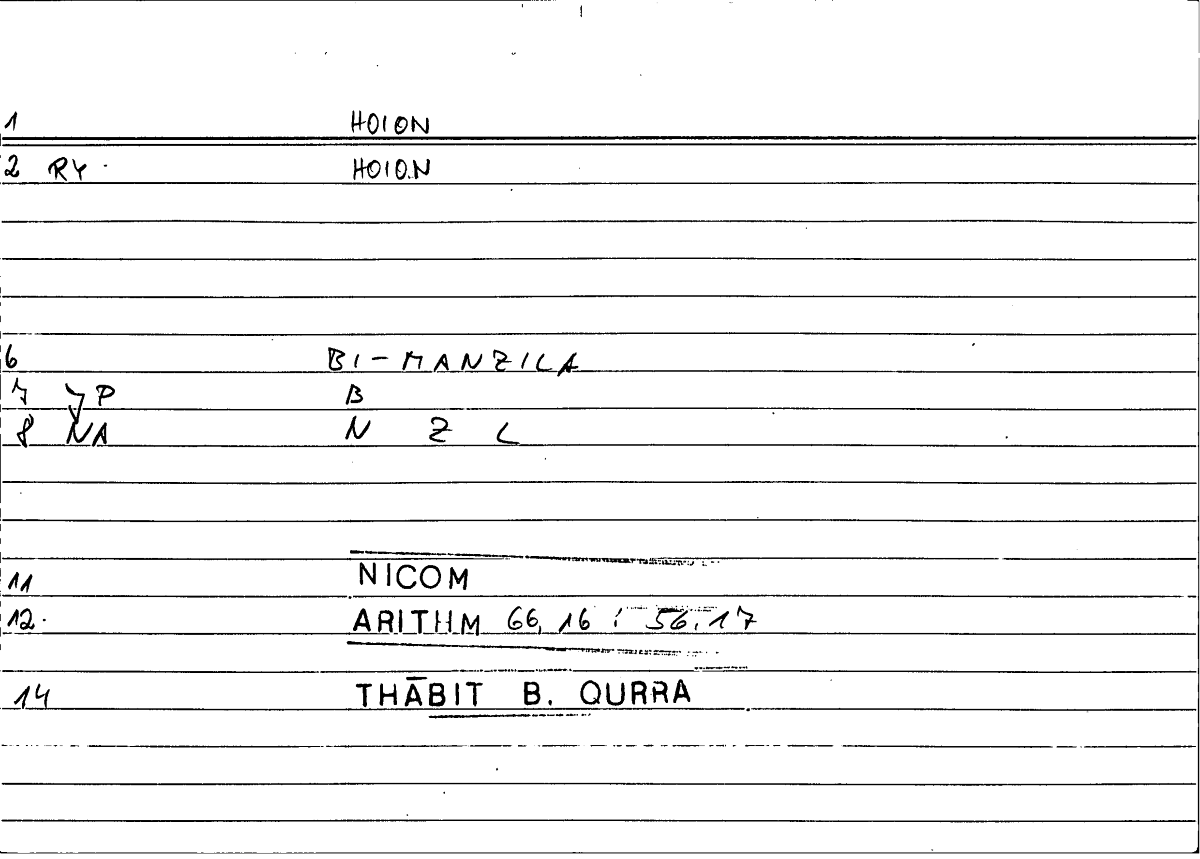 1 HOION
2 RY. HOION
6 BI-MANZILA
7 P B
8 NA N Z L
11 NICOM
12. ARITHM 66,16 : 56,17
14 THĀBIT B. QURRA